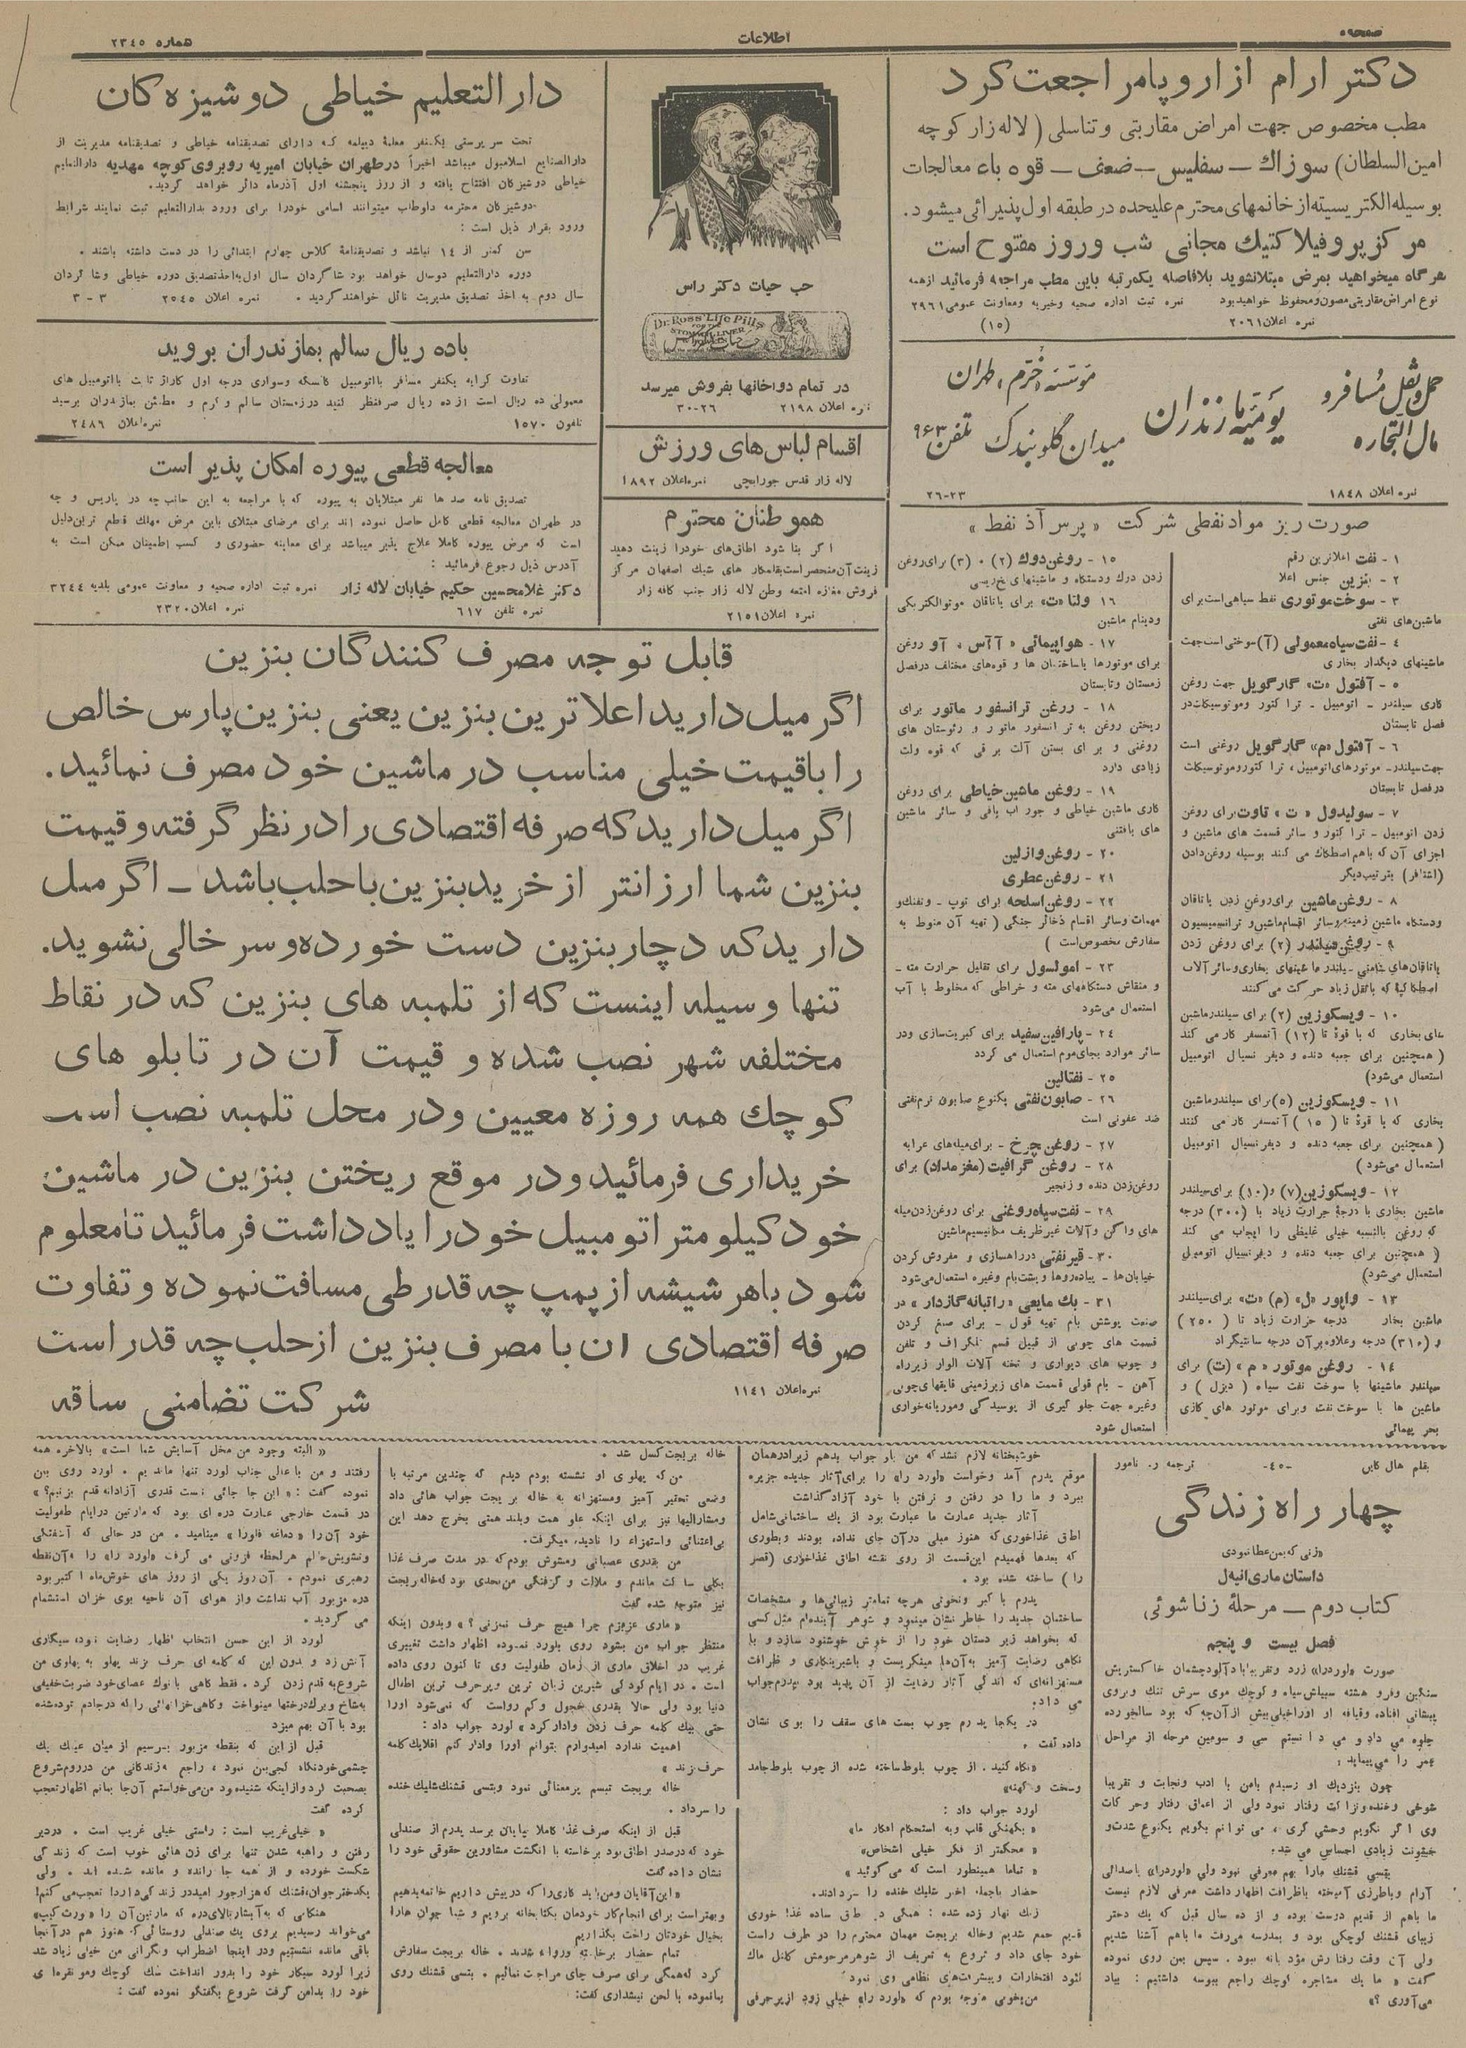 صفحه ۵
اطلاعات
شماره ۲۳۴۵
دکتر ارام از اروپا مراجعت کرد
مطب مخصوص جهت امراض مقاربتی و تناسلی (لاله زار کوچه
امین السلطان) سوزاك – سفلیس – ضعف – قوه باء معالجات
بوسیله الکتریسیته از خانمهای محترم علیحده در طبقه اول پذیرائی میشود.
مرکز پروفیلاکتیك مجانی شب وروز مفتوح است
هرگاه میخواهید بمرض مبتلا نشوید بلافاصله یکمرتبه باین مطب مراجعه فرمائید از همه
نوع امراض مقاربتی مصون و محفوظ خواهید بود نمره ثبت اداره صحیه و خیریه و معاونت عمومی ۲۹۶۱
نمره اعلان ۲۰۶۱ (۱۵)
حمل و نقل مسافر و
مال التجاره
یومیه مازندران
مؤسسه اخترم، طهران
میدان گلوبندك تلفن ۹۶۳
نمره اعلان ۱۸۴۸ ۲۳-۲۶
حب حیات دکتر راس
Dr. Ross' Life Pills
FOR THE
STOMACH LIVER
در تمام دواخانها بفروش میرسد
نمره اعلان ۲۱۹۸ ۲۶-۳۰
اقسام لباس های ورزش
لاله زار قدس جورابچی نمره اعلان ۱۸۹۲
هموطنان محترم
اگر بنا شود اطاق های خودرا زینت دهید
زینت آن منحصر است بقلمکار های شیك اصفهان مرکز
فروش مغازه امتعه وطن لاله زار جنب کافه زار
نمره اعلان ۲۱۵۱
دارالتعلیم خیاطی دوشیزه کان
تحت سرپرستی یکنفر معلمه دیپلمه که دارای تصدیقنامه خیاطی و تصدیقنامه مدیریت از
دارالصنایع اسلامبول میباشد اخیراً در طهران خیابان امیریه روبروی کوچه مهدیه دارالتعلیم
خیاطی دوشیزکان افتتاح یافته و از روز پنجشنبه اول آذرماه دائر خواهد گردید.
دوشیزکان محترمه داوطلب میتوانند اسامی خودرا برای ورود بدارالتعلیم ثبت نمایند شرایط
ورود بقرار ذیل است :
سن کمتر از ۱۴ نباشد و تصدیقنامهٔ کلاس چهارم ابتدائی را در دست داشته باشند .
دوره دارالتعلیم دوسال خواهد بود شاگردان سال اول به اخذ تصدیق دوره خیاطی و شاگردان
سال دوم به اخذ تصدیق مدیریت نائل خواهند گردید . نمره اعلان ۲۵۴۵ ۳ – ۳
باده ریال سالم بمازندران بروید
تفاوت کرایه یکنفر مسافر با اتومبیل کاسکه وسواری درجه اول کاراژ ثابت با اتومبیل های
معمولی ده ریال است از ده ریال صرفنظر کنید در زمستان سالم و گرم و مطمئن بمازندران برسید
تلفون ۱۵۷۰ نمره اعلان ۲۴۸۶
معالجه قطعی پیوره امکان پذیر است
تصدیق نامه صدها نفر مبتلایان به پیوره که با مراجعه به این جانب چه در پاریس و چه
در طهران معالجه قطعی کامل حاصل نموده اند برای مرضای مبتلای باین مرض مهلك قطع ترین دلیل
است که مرض پیوره کاملا علاج پذیر میباشد برای معاینه حضوری و کسب اطمینان ممکن است به
آدرس ذیل رجوع فرمائید :
دکتر غلامحسین حکیم خیابان لاله زار نمره ثبت اداره صحیه و معاونت عمومی بلدیه ۳۲۴۴
نمره تلفن ۶۱۷ نمره اعلان ۲۳۲۰
قابل توجه مصرف کنندگان بنزین
اگر میل دارید اعلا ترین بنزین یعنی بنزین پارس خالص
را با قیمت خیلی مناسب در ماشین خود مصرف نمائید.
اگر میل دارید که صرفه اقتصادی را در نظر گرفته و قیمت
بنزین شما ارزانتر از خرید بنزین با حلب باشد – اگر میل
دارید که دچار بنزین دست خورده و سر خالی نشوید.
تنها وسیله اینست که از تلمبه های بنزین که در نقاط
مختلفه شهر نصب شده و قیمت آن در تابلو های
کوچك همه روزه معیین و در محل تلمبه نصب است
خریداری فرمائید و در موقع ریختن بنزین در ماشین
خود کیلومتر اتومبیل خود را یادداشت فرمائید تا معلوم
شود باهر شیشه از پمپ چه قدر طی مسافت نموده و تفاوت
صرفه اقتصادی ان با مصرف بنزین از حلب چه قدر است
نمره اعلان ۱۱۴۱ شرکت تضامنی ساقه
صورت ریز مواد نفطی شرکت « پرس آذ نفط »
۱ - نفت اعلا ترین رقم
۲ - بنزین جنس اعلا
۳ - سوخت موتوری نفط سیاهی است برای
ماشین های نفتی
۴ - نفت سیاه معمولی (آ) سوختی است جهت
ماشینهای دیگدار بخاری
۵ - آفتول «ت» گارگویل جهت روغن
کاری سیلندر - اتومبیل - تراکتور وموتوسیکلت در
فصل تابستان
۶ - آفتول «م» گارگویل روغنی است
جهت سیلندر - موتورهای اتومبیل، تراکتور و موتوسیکلت
در فصل تابستان
۷ - سولیدول « ت » تاوت برای روغن
زدن اتومبیل - تراکتور و سائر قسمت های ماشین و
اجزای آن که باهم اصطکاك می کنند بوسیله روغن دادن
(اشتافر) بترتیب دیگر
۸ - روغن ماشین برای روغن زدن یاتاقان
ودستگاه ماشین زمینه وسائر اقسام ماشین و ترانسمیسیون
۹ - روغن سیلندر (۲) برای روغن زدن
اصطکاکیه که باثقل زیاد حرکت می کنند
۱۰ - ویسکوزین (۲) برای سیلندر ماشین
های بخاری که با قوهٔ تا (۱۲) آتمسفر کار می کند
( همچنین برای جعبه دنده و دیفرنسیال اتومبیل
استعمال می شود)
۱۱ - ویسکوزین (۵) برای سیلندر ماشین
بخاری که با قوهٔ تا ( ۱۵ ) آتمسفر کار می کنند
( همچنین برای جعبه دنده و دیفرنسیال اتومبیل
استعمال می شود )
۱۲ - ویسکوزین (۷) و (۱۰) برای سیلندر
ماشین بخاری با درجهٔ حرارت زیاد با (۳۰۰) درجه
که روغن بالنسبه خیلی غلیظی را ایجاب می کند
( همچنین برای جعبه دنده و دیفرنسیال اتومبیل
استعمال می شود)
۱۳ - واپور «ل» (م) «ت» برای سیلندر
ماشین بخار درجه حرارت زیاد تا ( ۲۵۰ )
و (۳۱۰) درجه وعلاوه بر آن درجه سانتیگراد
۱۴ - روغن موتور «م» (ت) برای
سیلندر ماشینها با سوخت نفت سیاه ( دیزل ) و
ماشین ها با سوخت نفت وبرای موتور های گازی
بحر پیمائی
۱۵ - روغن دوك (۲) و (۳) برای روغن
زدن درك ودستگاه و ماشینهای نخ ریسی
۱۶ - ولتا «ت» برای یاتاقان موتور الکتریکی
ودینام ماشین
۱۷ - هواپیمائی « آآس ، آو روغن
برای موتورها باساختمان ها و قوه های مختلف در فصل
زمستان و تابستان
۱۸ - روغن ترانسفورماتور برای
ریختن روغن به ترانسفورماتور و رئوستان های
روغنی و برای بستن آلت برقی که قوه ولت
زیادی دارد
۱۹ - روغن ماشین خیاطی برای روغن
کاری ماشین خیاطی و جوراب بافی و سائر ماشین
های بافتنی
۲۰ - روغن وازلین
۲۱ - روغن عطری
۲۲ - روغن اسلحه برای توپ - وتفنك و
مهمات وسائر اقسام ذخائر جنگی ( تهیه آن منوط به
سفارش مخصوص است )
۲۳ - امولسول برای تقلیل حرارت مته -
و منقاش دستگاههای مته و خراطی که مخلوط با آب
استعمال می شود
۲۴ - پارافین سفید برای کبریت سازی ودر
سائر موارد بجای موم استعمال می گردد
۲۵ - نفتالین
۲۶ - صابون نفتی یکنوع صابون نرم نفتی
ضد عفونی است
۲۷ - روغن چرخ - برای میله های عرابه
۲۸ - روغن گرافیت (مغز مداد) برای
روغن زدن دنده و زنجیر
۲۹ - نفت سیاه روغنی برای روغن زدن میله
های واگن وآلات غیر ظریف مکانیسم ماشین
۳۰ - قیر نفتی در راهسازی و مفروش کردن
خیابان ها - پیاده روها و پشت بام وغیره استعمال می شود
۳۱ - بك مایعی «راتیانه گازدار» در
صنعت پوشش بام تهیه قول - برای صمغ کردن
قسمت های چوبی از قبیل قسم تلگراف و تلفن
و چوب های دیواری و تخته آلات الوار زیر راه
آهن - بام قولی قسمت های زیرزمینی قایقهای چوبی
وغیره جهت جلوگیری از پوسیدگی و موریانه خواری
استعمال شود
بقلم هال کاین -۴۵- ترجمه ر. نامور
چهار راه زندگی
«زنی که بمن عطا نبودی
داستان ماری انیل
کتاب دوم – مرحلهٔ زناشوئی
فصل بیست و پنجم
صورت «لورد را» زرد وتقریبا باد آلود چشمان خاکستریش
سنگین وفرو هشته سبیلش سیاه و کوچك موی سرش تنك وبروی
پیشانی افتاده وقیافه او اورا خیلی بیش از آنچه که بود سالخورده
جلوه می داد و می دانستم سی و سومین مرحله از مراحل
عمر را می پیماید.
چون بنزدیك او رسیدم بامن با ادب ونجابت و تقریبا
شوخی وخنده ونزاکت رفتار نمود ولی از اعماق رفتار وحرکات
وی اگر نگویم وحشی گری، می توانم بگویم یکنوع شدت و
خشونت زیادی احساس می شد.
بتسی قشنك مارا بهم معرفی نمود ولی «لورد را» باصدائی
آرام وباطرزی آمیخته باظرافت اظهار داشت معرفی لازم نیست
ما باهم از قدیم درست بوده و از ده سال قبل که یك دختر
زیبای قشنك کوچکی بود و بمدرسه می رفت ما باهم آشنا شدیم
ولی آن وقت رفتارش مؤدبانه نبود. سپس بمن روی نموده
گفت « ما یك مشاجره کوچك راجع ببوسه داشتیم : بیاد
می آوری ؟»
خوشبختانه لازم نشد که من بار جواب بدهم زیرا درهمان
موقع پدرم آمد وخواست «لورد را» را برای آثار جدیده جزیره
ببرد و ما را دو رفتن و نرفتن با خود آزاد گذاشت
آثار جدید عمارت ما عبارت بود از یك ساختمانی شامل
اطاق غذاخوری که هنوز مبلی درآن جای نداده بودند وبطوری
که بعدها فهمیدم این قسمت از روی نقشه اطاق غذاخوری (قصر
را ) ساخته شده بود .
پدرم با کبر ونخوتی هرچه تمامتر زیبائی ها و مشخصات
ساختمان جدید را خاطر نشان مینمود و شوهر آینده ام مثل کسی
که بخواهد زیر دستان خود را از خویش خوشنود سازد و با
نگاهی رضایت آمیز به آن ها مینگریست و باشیرینکاری و ظرافت
مستهزانه ای که اندکی آثار رضایت از آن پدید بود بپدرم جواب
می داد.
در یکجا پدرم چوب بست های سقف را بوی نشان
داده گفت .
«نگاه کنید . از چوب بلوط ساخته شده از چوب بلوط جامد
وسخت و کهنه»
لورد جواب داد :
« بکهنگی قلب و به استحکام افکار ما»
« محکمتر از فکر خیلی اشخاص»
« تماما همینطور است که می گوئید »
حضار باجمله اخیر شلیك خنده را سر دادند.
زنك نهار زده شد : همگی در اطاق ساده غذاخوری
قدیم جمع شدیم وخاله بریجت مهمان محترم را در طرف راست
خود جای داد و شروع به تعریف از شوهر مرحومش کاتل ماك
افتخارات وپیشرفت های نظامی وی نمود
من بخوبی متوجه بودم که «لورد را» خیلی زود از پرحرفی
خاله بریجت کسل شد .
من که پهلوی او نشسته بودم دیدم که چندین مرتبه با
وضعی تحقیر آمیز ومستهزانه به خاله بریجت جواب هائی داد
ومشارالیها نیز برای اینکه علو همت وبلند همتی بخرج دهد این
بی اعتنائی واستهزاء را نادیده میگرفت.
من بقدری عصبانی ومشوش بودم که در مدت صرف غذا
بکلی ساکت ماندم و ملالت و گرفتگی من بحدی بود که خاله بریجت
نیز متوجه شده گفت
« ماری عزیزم چرا هیچ حرف نمیزنی ؟ » وبدون اینکه
منتظر جواب من بشود روی بلورد نموده اظهار داشت تغییری
غریب در اخلاق ماری از زمان طفولیت وی تا کنون روی داده
است . در ایام کودکی شیرین زبان ترین وپرحرف ترین اطفال
دنیا بود ولی حالا بقدری خجول وکم رواست که نمی شود اورا
حتی بیك کلمه حرف زدن وادار کرد » لورد جواب داد :
اهمیت ندارد امیدوارم بتوانم اورا وادار کنم اقلا یك کلمه
حرف بزند »
خاله بریجت تبسم پرمعنائی نمود وبتسی قشنك شلیك خنده
را سرداد .
قبل از اینکه صرف غذا کاملا بپایان برسد پدرم از صندلی
خود که درصدر اطاق بود برخاسته با انگشت مشاورین حقوقی خود را
نشان داده گفت
« این آقایان ومن باید کاری را که در پیش داریم خاتمه بدهیم
وبهتر است برای انجام کار خودمان بکتابخانه برویم و شما جوان هارا
بخیال خودتان راحت بگذاریم
تمام حضار برخاسته وروانه شدند . خاله بریجت سفارش
کرد که همگی برای صرف چای مراجعت نمائیم . بتسی قشنك روی
بمانموده با لحن نیشداری گفت:
« البته وجود من مخل آسایش شما است» بالاخره همه
رفتند و من با عالی جناب لورد تنها ماندیم . لورد روی بمن
نموده گفت : «این جا جائی نیست قدری آزادانه قدم بزنیم؟»
در قسمت خارجی عمارت دره ای بود که مارتین درایام طفولیت
خود آن را « دماغه فلورا » مینامید . من در حالی که آشفتگی
وتشویش حالم هر لحظه فزونی می گرفت «لورد را» را به آن نقطه
رهبری نمودم . آن روز یکی از روز های خوش ماه اکتبر بود
دره مزبور آب نداشت واز هوای آن ناحیه بوی خزان استشمام
می گردید .
لورد از این حسن انتخاب اظهار رضایت نموده سیگاری
آتش زد و بدون این که کلمه ای حرف بزند پهلو به پهلوی من
شروع به قدم زدن کرد . فقط گاهی بانوك عصای خود ضربت خفیفی
به شاخ وبرك درختها مینواخت وگاهی خزانهائی را که درجاده توده شده
بود با آن بهم میزد
قبل از این که بنقطه مزبور برسیم از میان عینك یك
چشمی خودنگاه کجی بمن نمود، راجع بزندگانی من در روم شروع
بصحبت کرد و از اینکه شنیده بود من می خواستم آن جا بمانم اظهار تعجب
کرده گفت
« خیلی غریب است : راستی خیلی غریب است . در دیر
رفتن و راهبه شدن تنها برای زن هائی خوب است که زندگی
شکست خورده و از همه جا رانده و مانده شده اند . ولی
یکدختر جوان قشنك که هزار جور امید در زندگی دارد! تعجب می کنم!
هنگامی که به آبشار بالای دره که مارتین آن را «ورت کیپ»
می خواند رسیدیم بروی یك صندلی روستائی که هنوز هم در آنجا
باقی مانده نشستیم ودر اینجا اضطراب ونگرانی من خیلی زیاد شد
زیرا لورد سیگار خود را بدور انداخت سك کوچك ومونقره ای
خود را بدامن گرفت شروع بگفتگو نموده گفت :